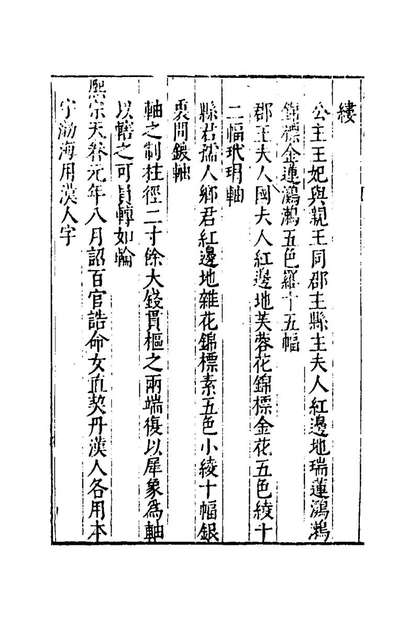 縷
公主王妃與親王同郡主縣主夫人紅邊地瑞蓮鸂鶒
錦褾金蓮鸂鶒五色羅十五幅
郡王夫人國夫人紅邊地芙蓉花錦褾金花五色綾十
二幅玳瑁軸
縣君孺人鄉君紅邊地雜花錦褾素五色小綾十幅銀
裹間鍍軸
軸之制柱徑二寸餘大錢貫樞之兩端復以犀象為軸
以轄之可貟轉如輪
熙宗天眷元年八月詔百官誥命女直契丹漢人各用本
字渤海用漢人字